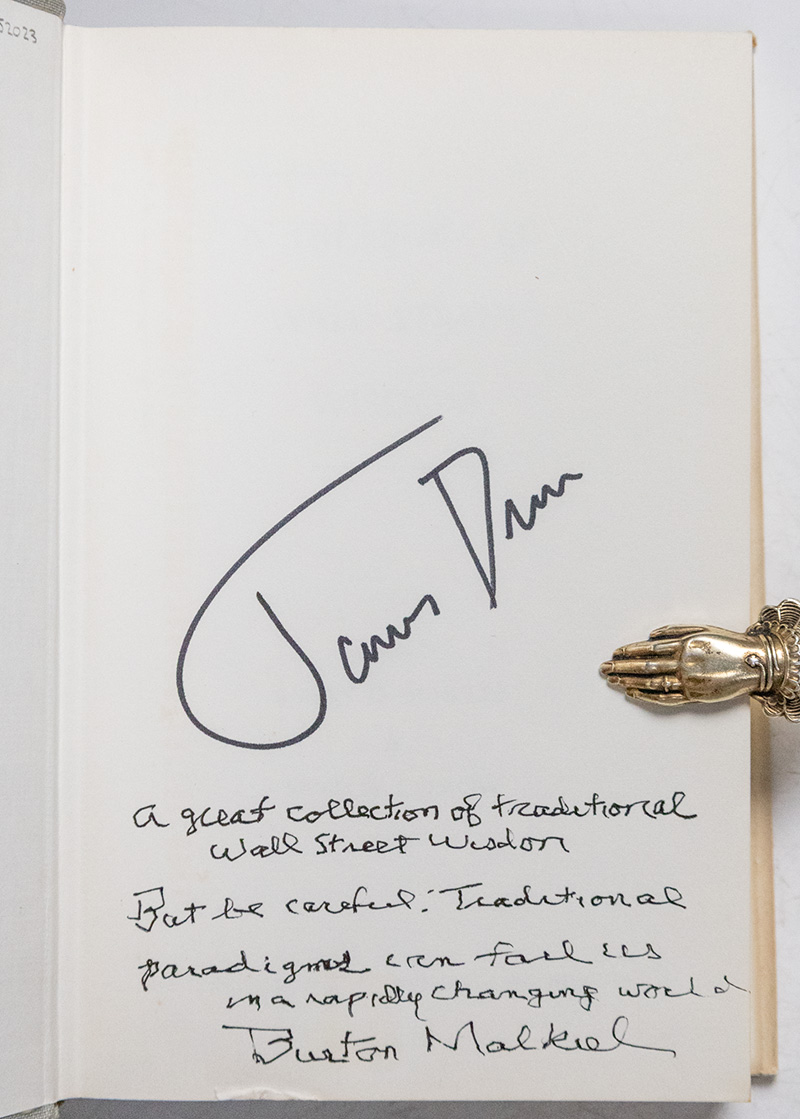 52023
James
A great collection of traditional
Wall Street Wisdom
But be careful: Traditional
paradigms can fail us
in a rapidly changing world
Burton Malkiel